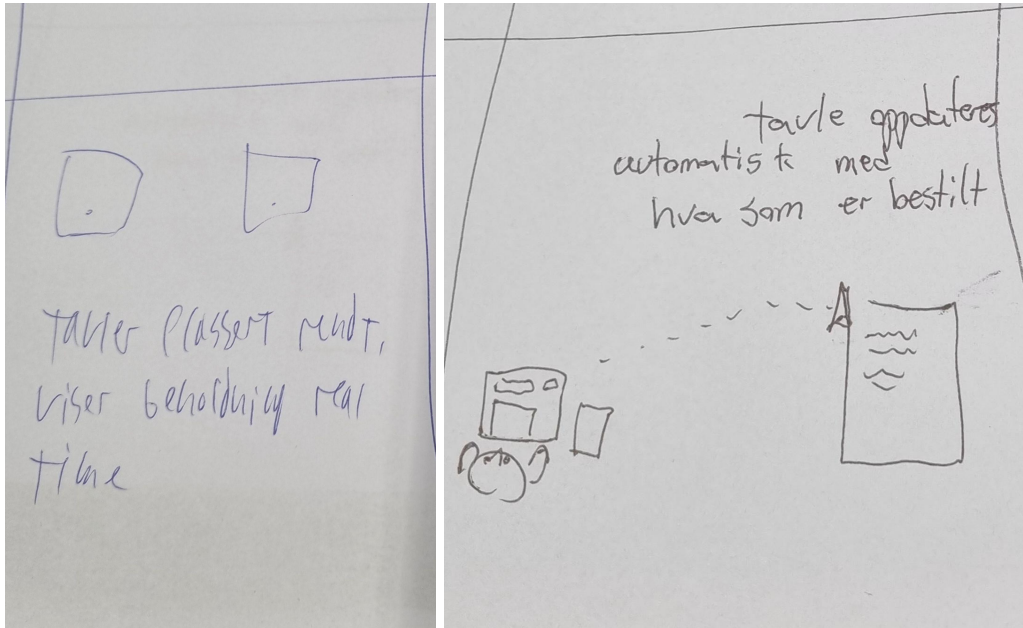 tavler plassert rundt,
viser beholdning real
time
tavle oppdateres
automatisk med
hva som er bestilt